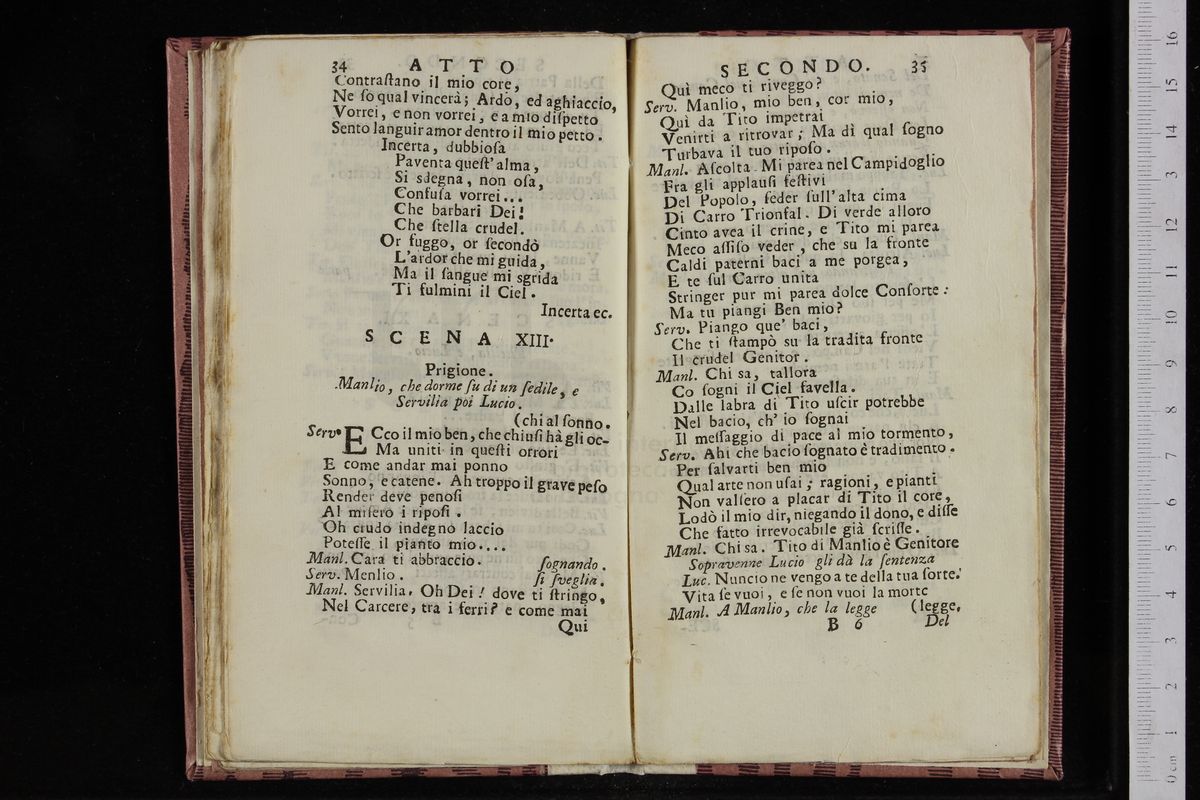 34 ATTO
Contraſtano il mio core,
Ne ſo qual vincerà; Ardo, ed aghiaccio,
Vorrei, e non vorrei, e a mio diſpetto
Sento languir amor dentro il mio petto.
Incerta, dubbioſa
Paventa queſt' alma,
Si sdegna, non oſa,
Confuſa vorrei...
Che barbari Dei!
Che ſtella crudel.
Or fuggo, or ſecondo
L'ardor che mi guida,
Ma il ſangue mi sgrida
Ti fulmini il Ciel.
Incerta ec.
SCENA XIII.
Prigione.
Manlio, che dorme ſu di un ſedile, e
Servilia poi Lucio.
(chi al ſonno.
Serv. ECco il mio ben, che chiuſi hà gli oc-
Ma uniti in queſti orrori
E come andar mai ponno
Sonno, e catene. Ah troppo il grave peſo
Render deve penoſi
Al miſero i ripoſi.
Oh crudo indegno laccio
Poteſſe il pianto mio....
Manl. Cara ti abbraccio. ſognando.
Serv. Menlio. ſi ſveglia.
Manl. Servilia, Oh Dei! dove ti ſtringo,
Nel Carcere, tra i ferri? e come mai
Qui
SECONDO. 35
Quì meco ti riveggo?
Serv. Manlio, mio ben, cor mio,
Quì da Tito impetrai
Venirti a ritrovar; Ma dì qual ſogno
Turbava il tuo ripoſo.
Manl. Aſcolta. Mi parea nel Campidoglio
Fra gli applauſi feſtivi
Del Popolo, ſeder ſull'alta cima
Di Carro Trionfal. Di verde alloro
Cinto avea il crine, e Tito mi parea
Meco aſſiſo veder, che su la fronte
Caldi paterni baci a me porgea,
E te ſul Carro unita
Stringer pur mi parea dolce Conſorte:
Ma tu piangi Ben mio?
Serv. Piango que' baci,
Che ti ſtampò su la tradita fronte
Il crudel Genitor.
Manl. Chi sa, tallora
Co ſogni il Ciel favella.
Dalle labra di Tito uſcir potrebbe
Nel bacio, ch' io ſognai
Il meſſaggio di pace al mio tormento,
Serv. Ahi che bacio ſognato è tradimento.
Per ſalvarti ben mio
Qual arte non uſai; ragioni, e pianti
Non valſero a placar di Tito il core,
Lodò il mio dir, niegando il dono, e diſſe
Che fatto irrevocabile già ſcriſſe.
Manl. Chi sa. Tito di Manlio è Genitore
Sopravenne Lucio gli dà la ſentenza
Luc. Nuncio ne vengo a te della tua ſorte.
Vita ſe vuoi, e ſe non vuoi la morte
Manl. A Manlio, che la legge (legge,
B 6 Del